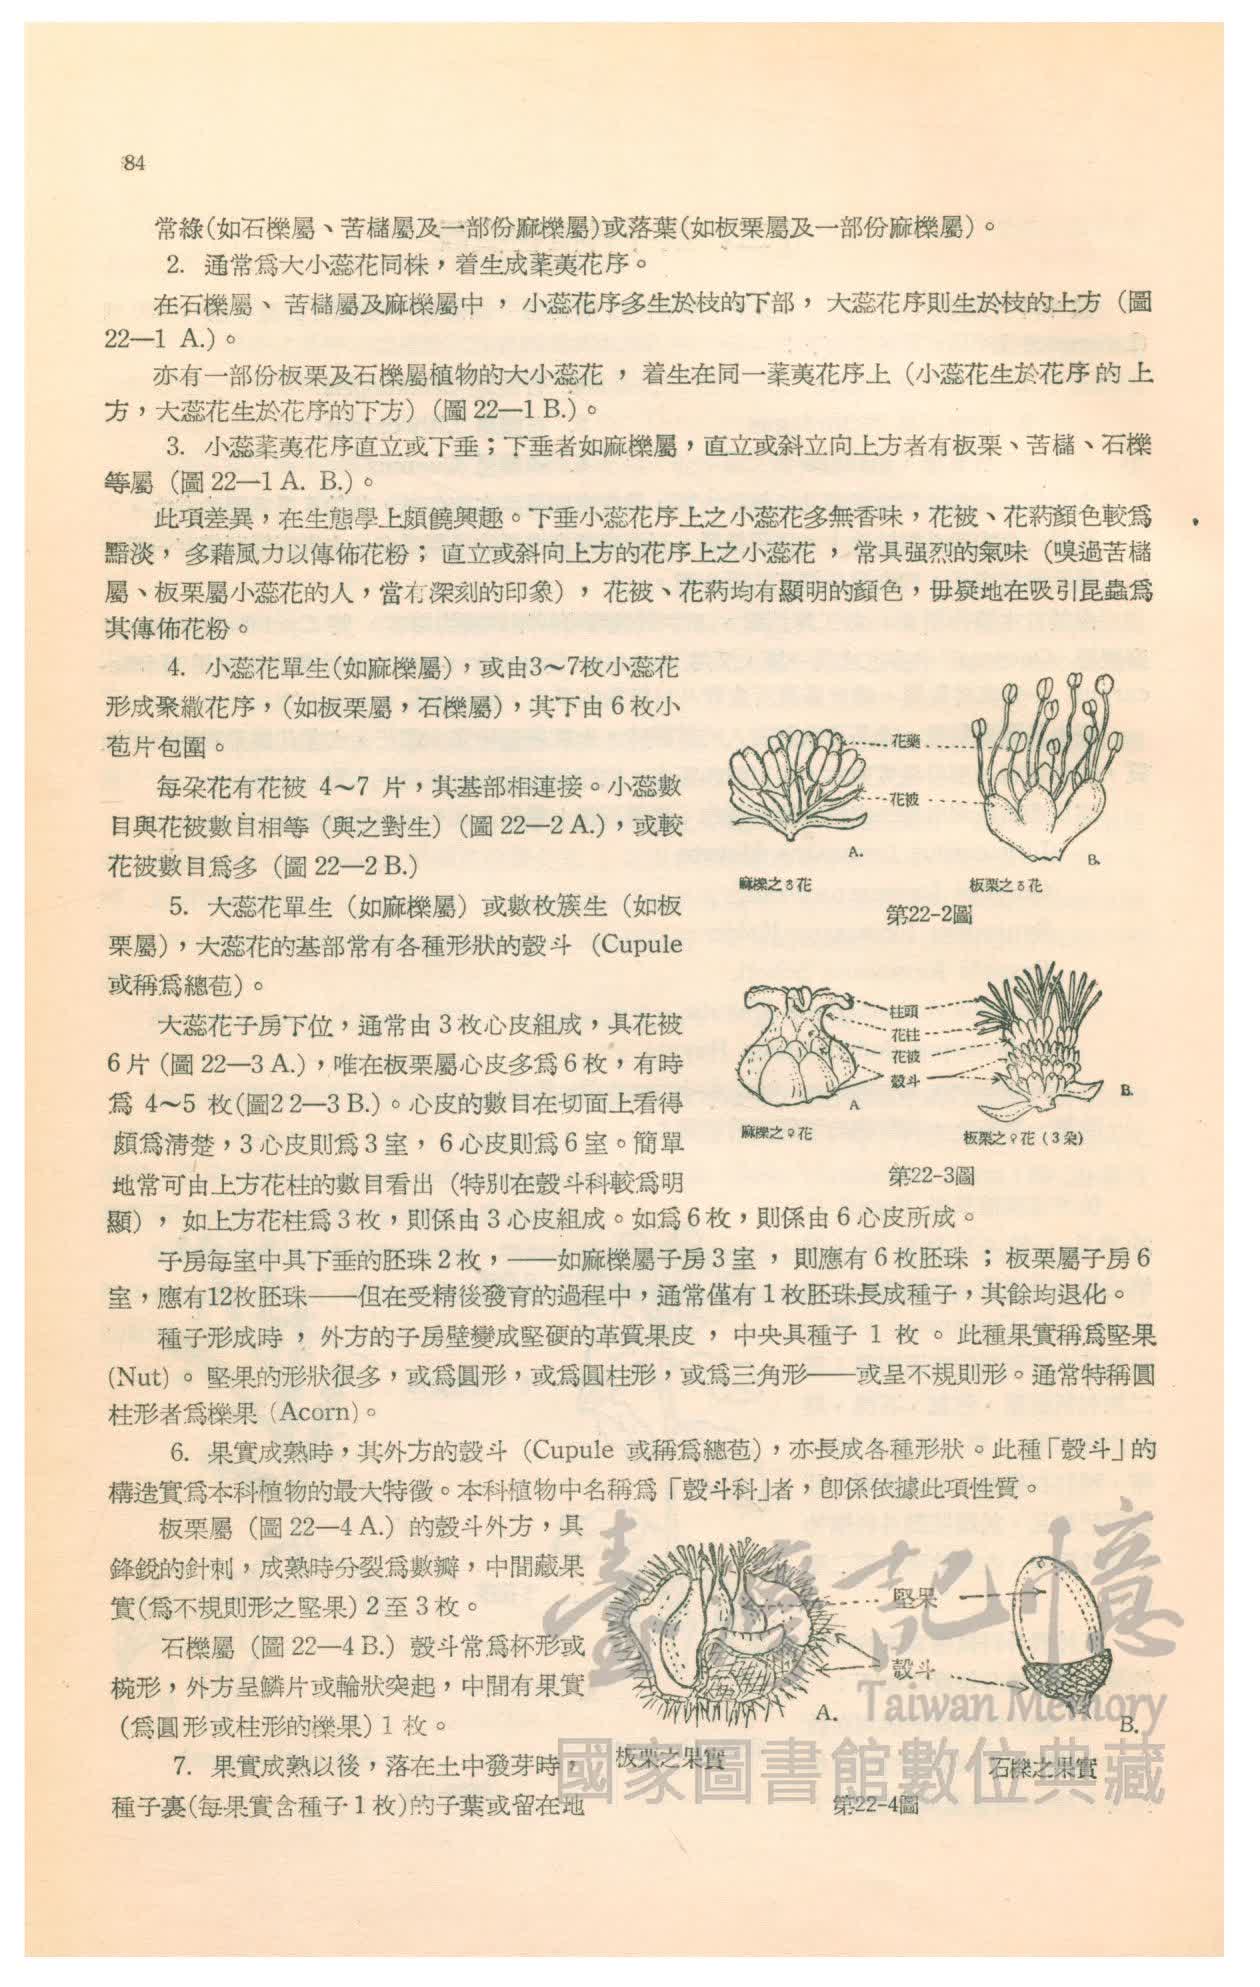 84
常綠(如石櫟屬、苦櫧屬及一部份麻櫟屬)或落葉(如板栗屬及一部份麻櫟屬)。
2. 通常爲大小蕊花同株,着生成葇荑花序。
在石櫟屬、苦櫧屬及麻櫟屬中,小蕊花序多生於枝的下部,大蕊花序則生於枝的上方(圖
22—1 A.)。
亦有一部份板栗及石櫟屬植物的大小蕊花,着生在同一葇荑花序上(小蕊花生於花序的上
方,大蕊花生於花序的下方)(圖22—1 B.)。
3. 小蕊葇荑花序直立或下垂;下垂者如麻櫟屬,直立或斜立向上方者有板栗、苦櫧、石櫟
等屬(圖22—1 A. B.)。
此項差異,在生態學上頗饒興趣。下垂小蕊花序上之小蕊花多無香味,花被、花葯顏色較爲
黯淡,多藉風力以傳佈花粉;直立或斜向上方的花序上之小蕊花,常具强烈的氣味(嗅過苦櫧
屬、板栗屬小蕊花的人,當有深刻的印象),花被、花葯均有顯明的顏色,毋疑地在吸引昆蟲爲
其傳佈花粉。
4. 小蕊花單生(如麻櫟屬),或由3~7枚小蕊花
形成聚繖花序,(如板栗屬,石櫟屬),其下由6枚小
苞片包圍。
每朶花有花被 4~7 片,其基部相連接。小蕊數
目與花被數目相等(與之對生)(圖22—2 A.),或較
花被數目爲多(圖22—2 B.)
5. 大蕊花單生(如麻櫟屬)或數枚簇生(如板
栗屬),大蕊花的基部常有各種形狀的殼斗(Cupule
或稱爲總苞)。
大蕊花子房下位,通常由3枚心皮組成,具花被
6片(圖22—3 A.),唯在板栗屬心皮多爲6枚,有時
爲 4~5 枚(圖2 2—3 B.)。心皮的數目在切面上看得
頗爲清楚,3心皮則爲3室,6心皮則爲6室。簡單
地常可由上方花柱的數目看出(特別在殼斗科較爲明
顯),如上方花柱爲3枚,則係由3心皮組成。如爲6枚,則係由6心皮所成。
子房每室中具下垂的胚珠2枚,——如麻櫟屬子房3室,則應有6枚胚珠;板栗屬子房6
室,應有12枚胚珠——但在受精後發育的過程中,通常僅有1枚胚珠長成種子,其餘均退化。
種子形成時,外方的子房壁變成堅硬的革質果皮,中央具種子 1 枚。此種果實稱爲堅果
(Nut)。堅果的形狀很多,或爲圓形,或爲圓柱形,或爲三角形——或呈不規則形。通常特稱圓
柱形者爲櫟果(Acorn)。
6. 果實成熟時,其外方的殼斗(Cupule 或稱爲總苞),亦長成各種形狀。此種「殼斗」的
構造實爲本科植物的最大特徵。本科植物中名稱爲「殼斗科」者,卽係依據此項性質。
板栗屬(圖22—4 A.)的殼斗外方,具
鋒銳的針刺,成熟時分裂爲數瓣,中間藏果
實(爲不規則形之堅果)2至3枚。
石櫟屬(圖22—4 B.)殼斗常爲杯形或
椀形,外方呈鱗片或輪狀突起,中間有果實
(爲圓形或柱形的櫟果)1枚。
7. 果實成熟以後,落在土中發芽時,
種子裏(每果實含種子1枚)的子葉或留在地
花藥
花被
A.
B.
麻櫟之♂花
板栗之♂花
第22-2圖
柱頭
花柱
花被
殼斗
A
B.
麻櫟之♀花
板栗之♀花(3朶)
第22-3圖
堅果
殼斗
A.
B.
板栗之果實
石櫟之果實
第22-4圖
臺灣記憶
Taiwan Memory
國家圖書館數位典藏